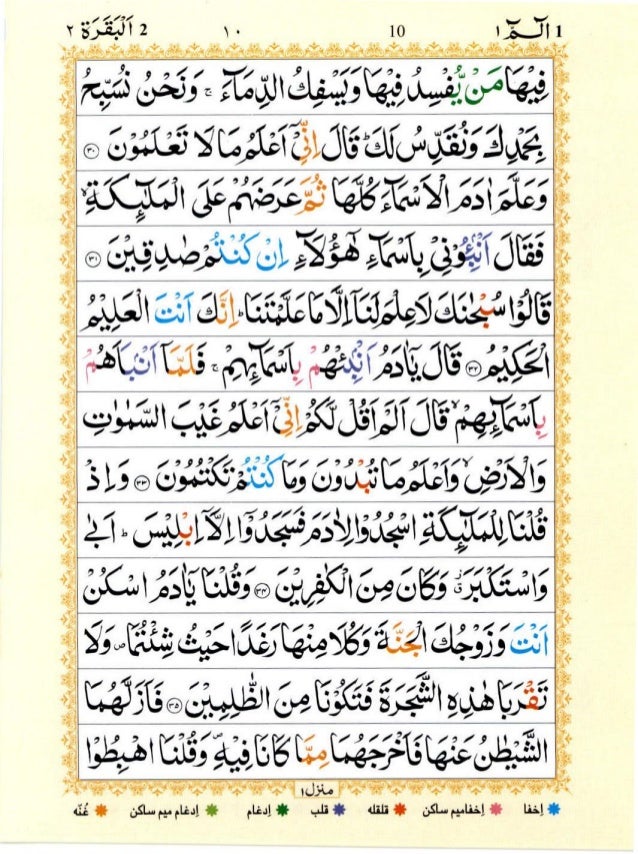 1 الٓـمّٓ ١ 10 ١٠ 2 اَلْبَقَرَة ٢
فِيْهَا مَنْ يُّفْسِدُ فِيْهَا وَيَسْفِكُ الدِّمَآءَ ۚ وَنَحْنُ نُسَبِّحُ
بِحَمْدِكَ وَنُقَدِّسُ لَكَ ؕ قَالَ اِنِّىْٓ اَعْلَمُ مَا لَا تَعْلَمُوْنَ ۝۳۰
وَعَلَّمَ اٰدَمَ الْاَسْمَآءَ كُلَّهَا ثُمَّ عَرَضَهُمْ عَلَى الْمَلٰٓئِكَةِ ۙ
فَقَالَ اَنْۢبِـُٔوْنِىْ بِاَسْمَآءِ هٰٓؤُلَآءِ اِنْ كُنْتُمْ صٰدِقِيْنَ ۝۳۱
قَالُوْا سُبْحٰنَكَ لَا عِلْمَ لَنَآ اِلَّا مَا عَلَّمْتَنَا ؕ اِنَّكَ اَنْتَ الْعَلِيْمُ
الْحَكِيْمُ ۝۳۲ قَالَ يٰٓاٰدَمُ اَنْۢبِئْهُمْ بِاَسْمَآئِهِمْ ۚ فَلَمَّآ اَنْۢبَاَهُمْ
بِاَسْمَآئِهِمْ ۙ قَالَ اَلَمْ اَقُلْ لَّكُمْ اِنِّىْٓ اَعْلَمُ غَيْبَ السَّمٰوٰتِ
وَالْاَرْضِ ۙ وَاَعْلَمُ مَا تُبْدُوْنَ وَمَا كُنْتُمْ تَكْتُمُوْنَ ۝۳۳ وَاِذْ
قُلْنَا لِلْمَلٰٓئِكَةِ اسْجُدُوْا لِاٰدَمَ فَسَجَدُوْٓا اِلَّآ اِبْلِيْسَ ؕ اَبٰى
وَاسْتَكْبَرَ ٭ۗ وَكَانَ مِنَ الْكٰفِرِيْنَ ۝۳۴ وَقُلْنَا يٰٓاٰدَمُ اسْكُنْ
اَنْتَ وَزَوْجُكَ الْجَنَّةَ وَكُلَا مِنْهَا رَغَدًا حَيْثُ شِئْتُمَا ۪ وَلَا
تَقْرَبَا هٰذِهِ الشَّجَرَةَ فَتَكُوْنَا مِنَ الظّٰلِمِيْنَ ۝۳۵ فَاَزَلَّهُمَا
الشَّيْطٰنُ عَنْهَا فَاَخْرَجَهُمَا مِمَّا كَانَا فِيْهِ ۪ وَقُلْنَا اهْبِطُوْا
منزل ١
اِخفا اِخفامیم ساکن قلقله قلب اِدغام اِدغام میم ساکن غُنّه